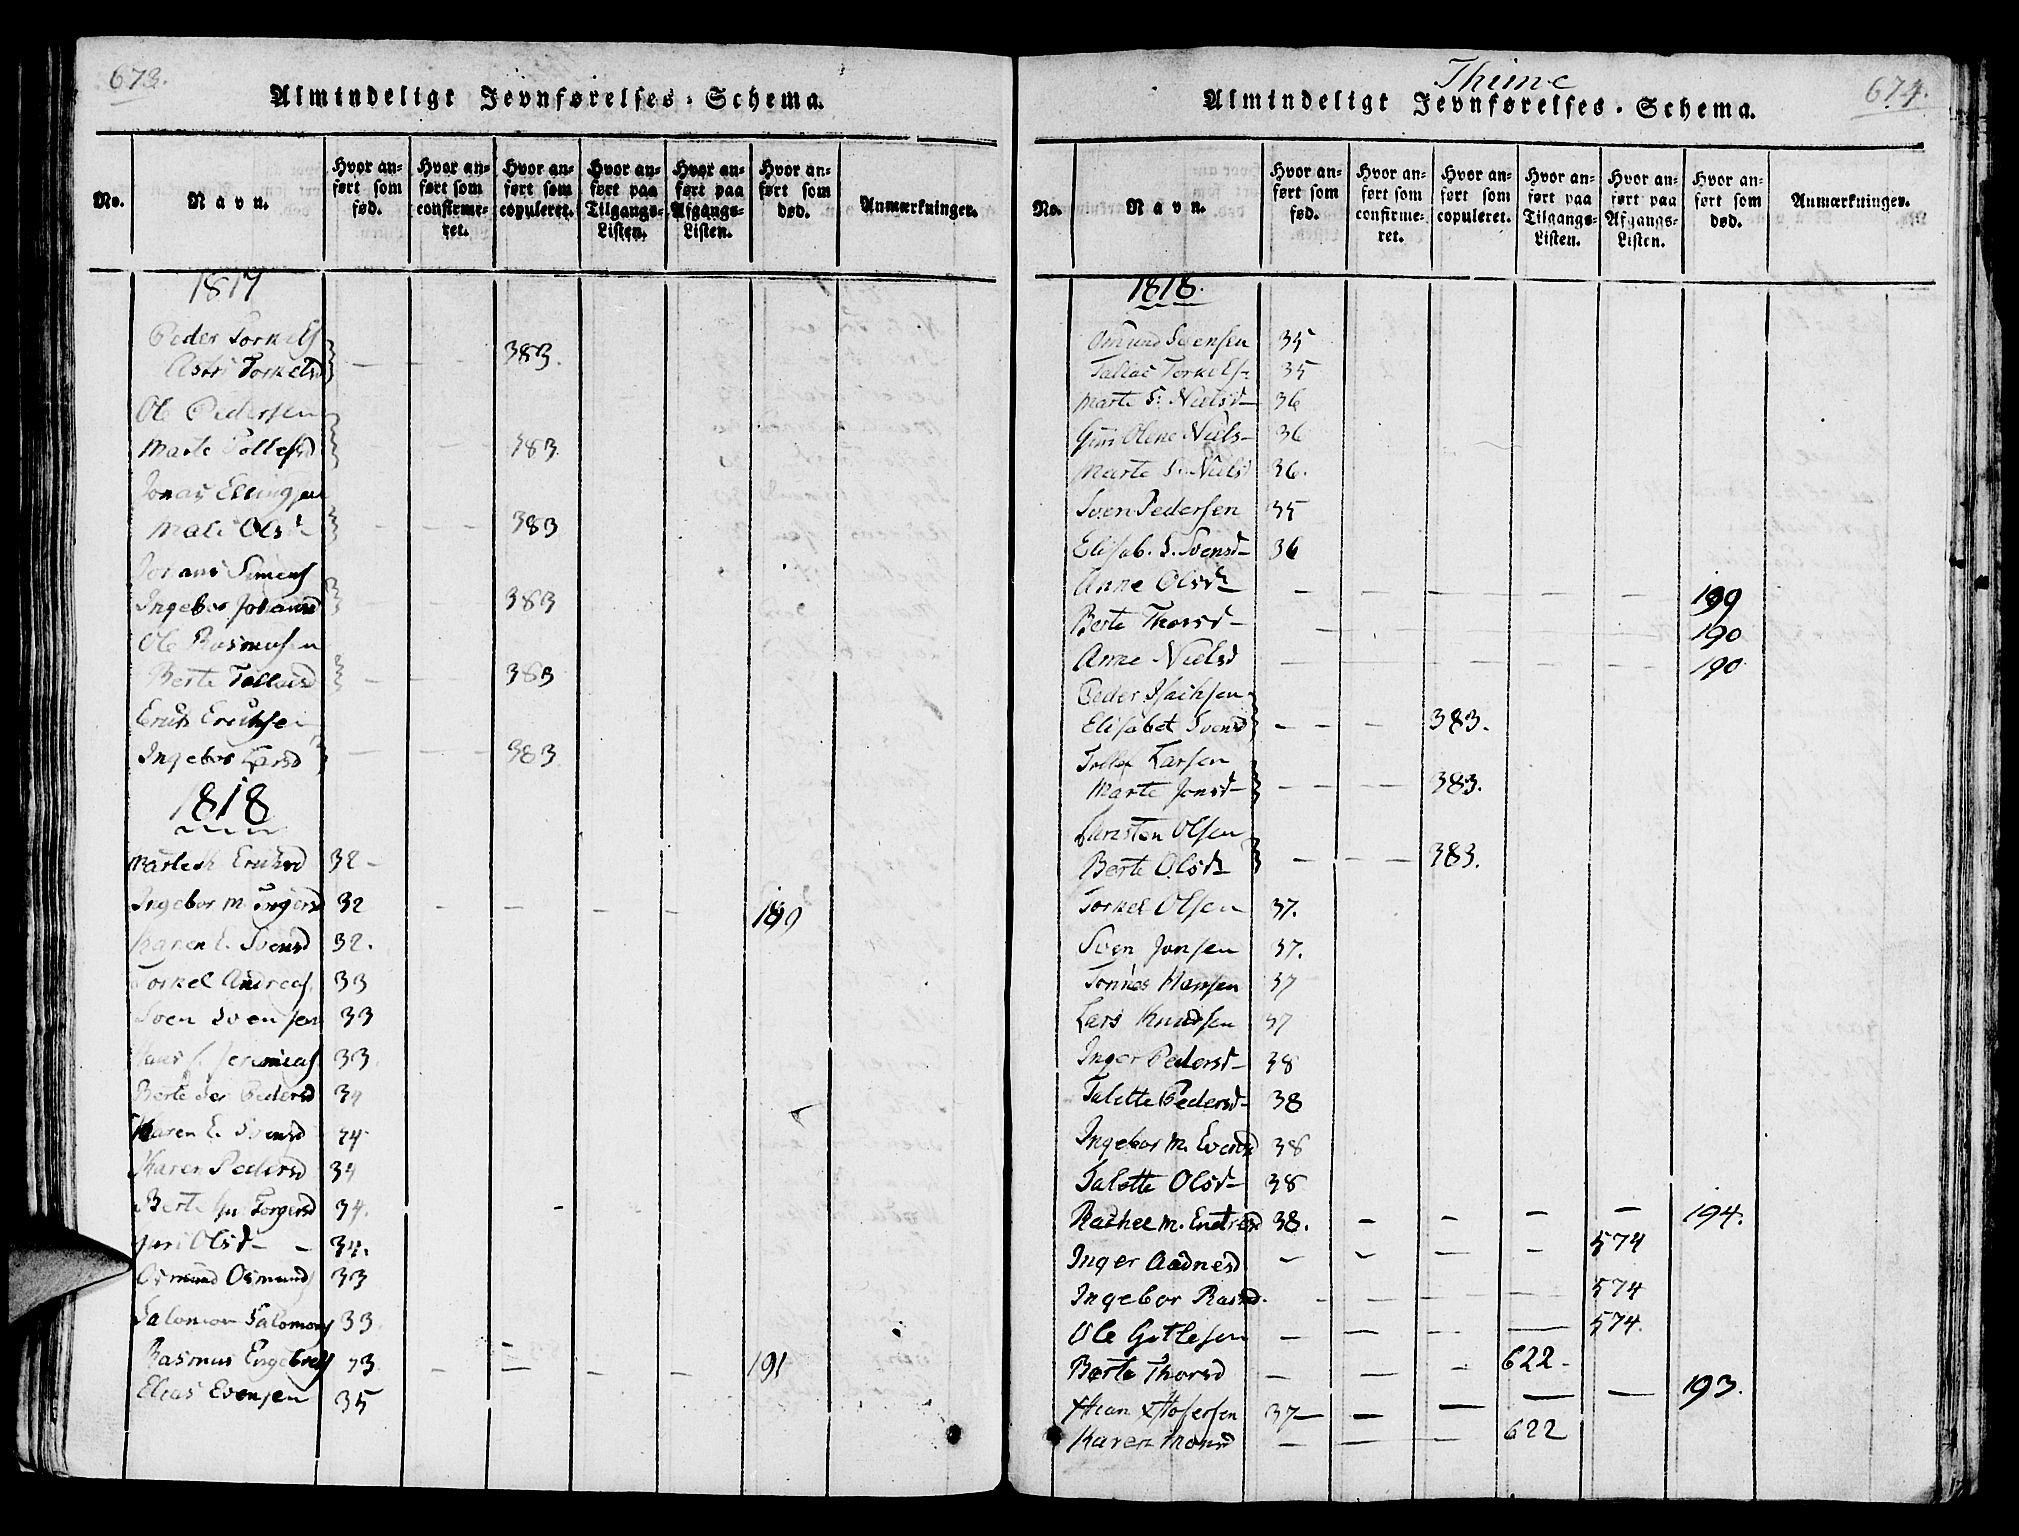 673.
Almindeligt Jevnførelses-Schema.
No.
Navn.
Hvor anført som fød.
Hvor anført som confirmeret.
Hvor anført som copuleret.
Hvor anført paa Tilgangs-Listen.
Hvor anført paa Afgangs-Listen.
Hvor anført som død.
Anmærkninger.
1817
Peder Torkels
Astri Torkelsd — — 383.
Ole Pedersen
Marte Tollefsd — — 383.
Jonas Ellingsen
Mali Olsd — — — 383
Johans Simens
Ingebor Johansd — — 383
Ole Rasmusen
Berte Tollaisd — — 383
Erich Erichsen
Ingebor Larsd — — — 383
1818
Erichsd 32 -
Ingebor M. 32 - — — —
Karen E. Svensd 32.
Torkel Andreas 33
Sven Svensen 33
33
Berte Pedersd 34
Karen E. Svensd 34
Karen Pedersd 34
Berte Torgersd 34.
Guri Olsd — - 34.
Osmund Osmunds 33
Salomon Salomons 33
Rasmus Engebrets 33. - — — — 191
Elias Evensen 35
Thime
674.
Almindeligt Jevnførelses-Schema.
No.
Navn.
Hvor anført som fød.
Hvor anført som confirmeret.
Hvor anført som copuleret.
Hvor anført paa Tilgangs-Listen.
Hvor anført paa Afgangs-Listen.
Hvor anført som død.
Anmærkninger.
1818.
Omund Svensen 35
Tallac Torkels 35
Marte S. Nielsd 36
Guri Olene Niels 36
Marte S. Nielsd 36.
Sven Pedersen 35
Elisab. S. Svensd 36
Anne Olsd — — — — —
Berte Thorsd — — — — — 190
Anne Nielsd — — — — — 190
Peder Isachsen
Elisabet Svensd — — — 383.
Tollef Larsen
Marte Jonsd — — — 383.
Christen Olsen
Berte Olsd — — — 383.
Torkel Olsen 37.
Sven Jonsen 37.
Tønnes Hansen 37
Lars Knudsen 37
Inger Pedersd 38
Talette Pedersd 38
Ingebor M. 38
Talette Olsd 38
Rachel M. Endresd 38. — — — — 194.
Inger Aadnesd — — — - 574
Ingebor Rasmd. — — — — 574
Ole Gitlesen — — — — 574.
Berte Thorsd — — — 622 -
37 — — — — — 193.
Karen Monsd — — — 622